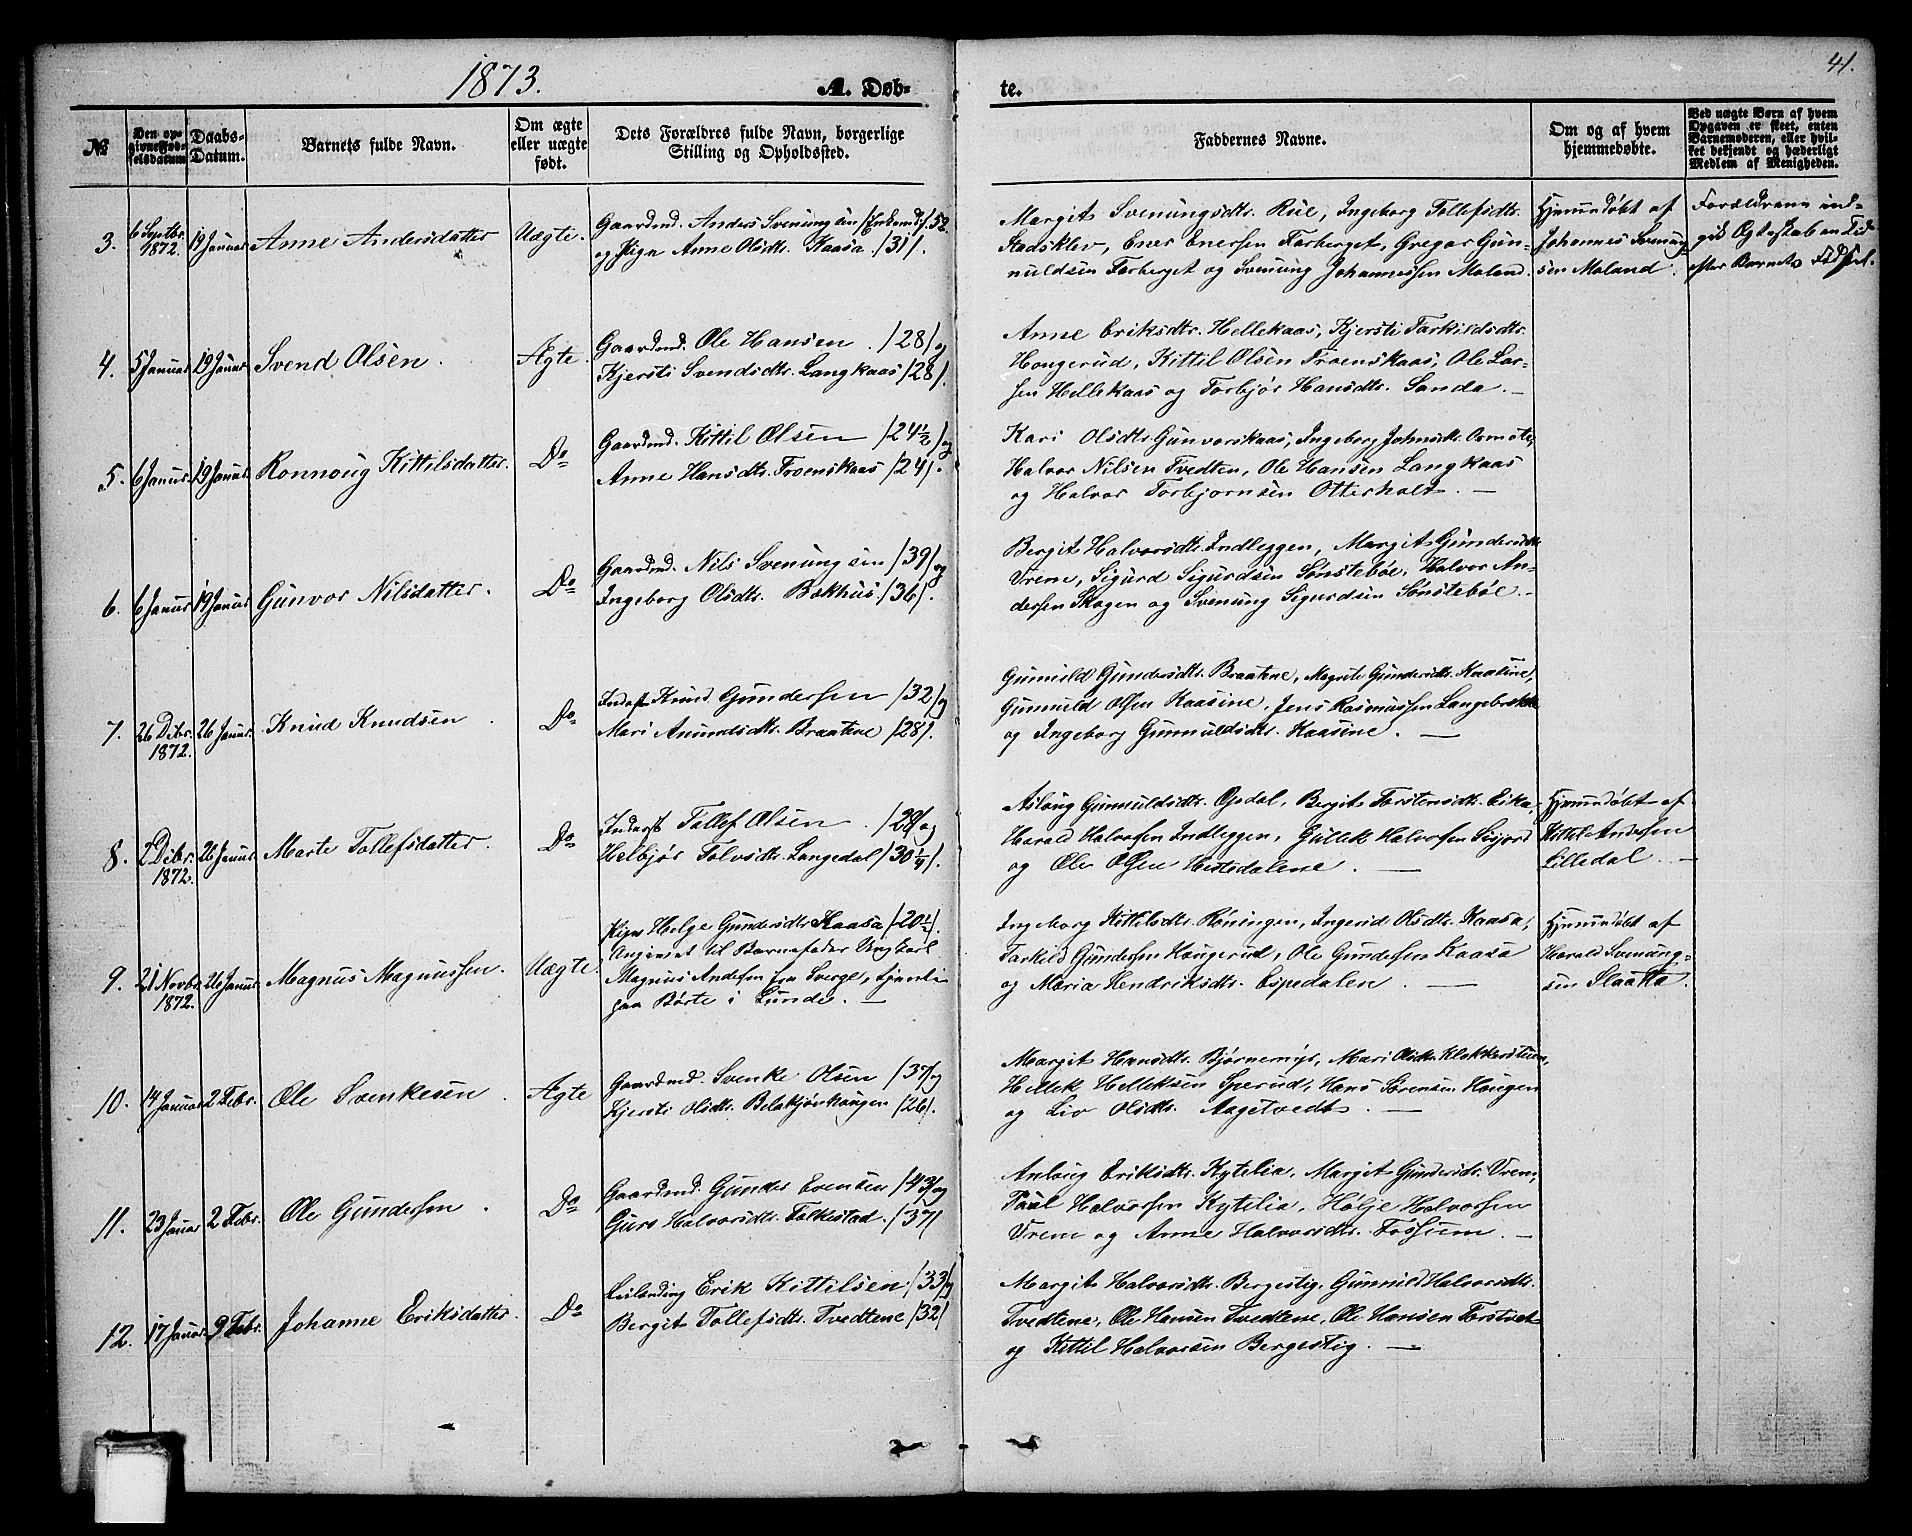 1873.
A. Døb-
te.
41.
№
Den op-
givne Fød-
selsdatum.
Daabs-
Datum.
Barnets fulde Navn.
Om ægte
eller uægte
født.
Dets Forældres fulde Navn, borgerlige
Stilling og Opholdssted.
Faddernes Navne.
Om og af hvem
hjemmedøbte.
Ved uægte Børn af hvem
Opgaven er skeet, enten
Barnemoderen, eller hvil-
ket bekjendt og hæderligt
Medlem af Menigheden.
3. 6 Septbr. 1872. 19 Januar Anne Andersdatter Uægte.
Gaardmd. Anders Svenungsen /Enkemd./ /52
og Pige Anne Olsdtr. Kaasa /31/.
Margit Svenungsdtr. Rue, Ingeborg Tollefsdtr.
Stadsklev, Ener Enersen Farberget, Gregar Gun-
nuldsen Farberget og Svenung Johannessen Moland.
Hjemmedøbt af
Johannes Svenung-
sen Moland.
Forældrene ind-
gik Ægteskab en Tid
efter Barnets Fødsel.
4. 5 Januar 19 Januar Svend Olsen. Ægte.
Gaardmd. Ole Hansen /28/ og
Kjersti Svendsdtr. Langkaas /28/.
Anne Eriksdtr. Hellekaas, Kjersti Tarkildsdtr.
Hougerud, Kittil Olsen Troenskaas, Ole Lar-
sen Hellekaas og Torbjør Hansdtr. Sanda. —
5. 6 Januar. 19 Januar. Ronnoug Kittilsdatter. Do
Gaardmd. Kittil Olsen /24 1/2/ og
Anne Hansdtr. Troenskaas /24/.
Kari Olsdtr. Gunvorskaas, Ingeborg Johnsdtr.
Halvor Nilsen Tvedten, Ole Hansen Langkaas
og Halvor Torbjørnsen Otterholt. —
6. 6 Januar 19 Januar Gunvor Nilsdatter. Do
Gaardmd. Nils Svenungsen /39/ og
Ingeborg Olsdtr. Bakhus. /36/.
Bergit Halvorsdtr. Indleggen, Margit Gundersdtr.
Vrem, Sigurd Sigurdsen Sønstebøe, Halvor An-
dersen Skogen og Svenung Sigurdsen Sønstebøe. —
7. 26 Dcbr. 1872. 26 Januar. Knud Knudsen. Do
Inderst Knud Gundersen /32/ og
Mari Anundsdtr. Braatene /28/.
Gunuld Gundersdtr. Braatene, Magrit Gundersdtr. Kaasine,
Gunnuld Olsen Kaasine, Jens Rasmussen
og Ingeborg Gunnuldsdtr. Kaasine. —
8. 2 Dcbr. 1872. 26 Januar. Marte Tollefsdatter. Do
Inderst Tollef Olsen /28/ og
Helbjør Tolvsdtr. Langedal /30 1/4/.
Aslaug Gunnuldsdtr. Opdal, Bergit Torstensdtr. Eika,
Harald Halvorsen Indleggen, Gullik Halvorsen
og Ole Olsen Hestedalene. —
Hjemmedøbt af
Kittil Andersen
Lilledal. —
9. 21 Novbr. 1872. 26 Januar Magnus Magnussen. Uægte.
Pige Helge Gundersdtr. Kaasa /20 1/2/.
Angivet til Barnefader Ungkarl
Magnus Andersen fra Sverge, tjenende
paa Børte i Lunde. —
Ingeborg Kittilsdtr. Røningen, Ingerid Olsdtr. Kaasa,
Tarkild Gundersen Hougerud, Ole Gundersen Kaasa
og Maria Hendriksdtr. Espedalen. —
Hjemmedøbt af
Harald Svenung-
sen Slaatta.
10. 14 Januar 2 Febr. Ole Svenkesen. Ægte
Gaardmd. Svenke Olsen /37/ og
Kjersti Olsdtr. Belakjønhaugen /26/.
Margit Hansdtr. Bjørnemyr, Mari Olsdtr. Klokkerstuen,
Hellek Helleksen Sperud, Hans Sørensen Haugen
og Liv Olsdtr. Aagetvedt. —
11. 23 Januar 2 Febr. Ole Gundersen. Do
Gaardmd. Gunder Evensen /43/ og
Guro Halvorsdtr. Folkestad. /37/
Anlaug Eriksdtr. Kytelia, Margit Gundersdtr. Vrem,
Paul Halvorsen Kytelia, Hølje Halvorsen
Vrem og Anne Halvorsdtr. Fossum. —
12. 17 Januar. 9 Febr. Johanne Eriksdatter. Do
Leilending Erik Kittilsen /33/ og
Bergit Tollefsdtr. Tvedtene /32/
Margit Halvorsdtr. Bergestig, Gunnuld Halvorsdtr.
Tvedtene, Ole Hansen Tvedtene, Ole Hansen Torstvet
og Kittil Halvorsen Bergestig. —